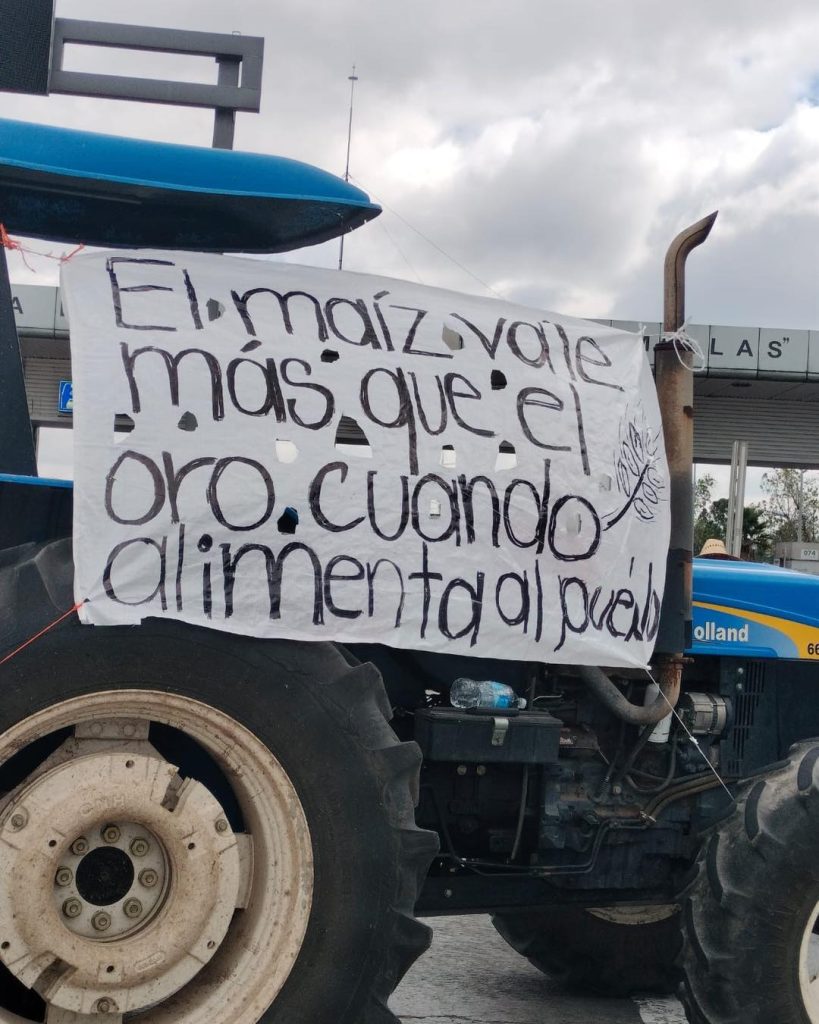 El maíz vale
más que el
oro. cuando
alimenta al pueblo
A
LAS"
olland
66
074